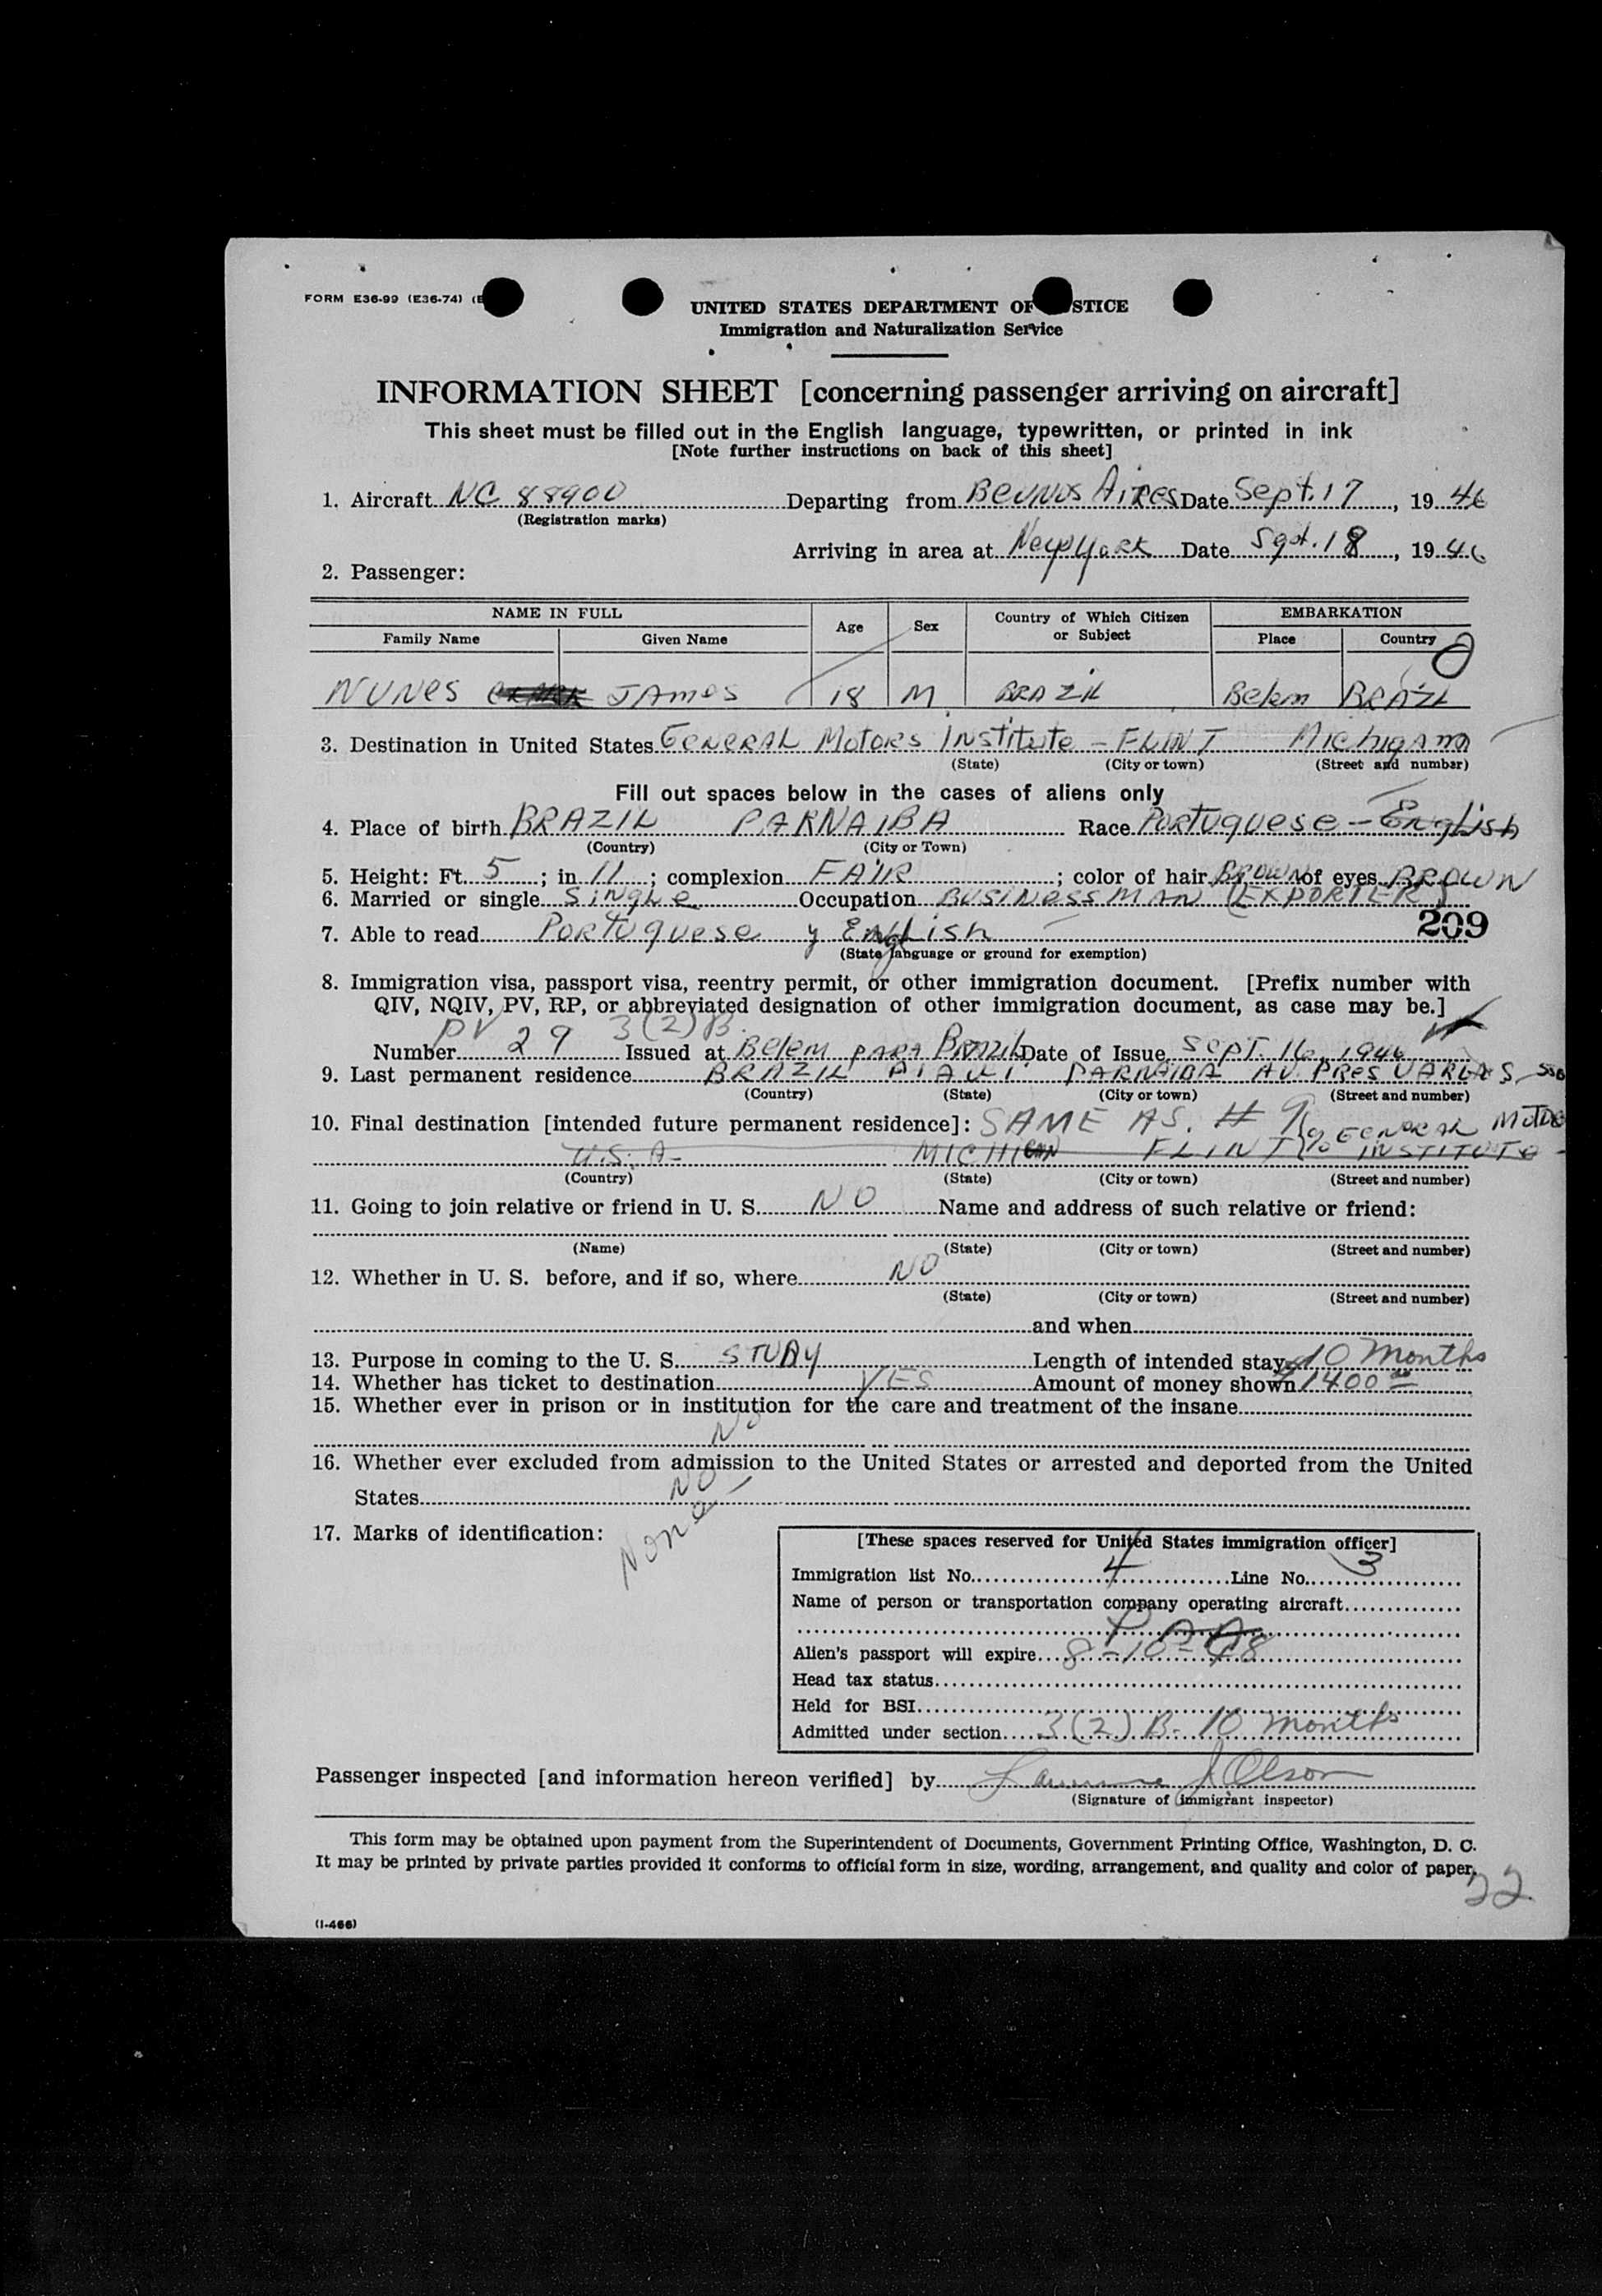 FORM E36-99 (E36-74)
UNITED STATES DEPARTMENT OF STICE
Immigration and Naturalization Service
INFORMATION SHEET [concerning passenger arriving on aircraft]
This sheet must be filled out in the English language, typewritten, or printed in ink
[Note further instructions on back of this sheet]
1. Aircraft NC 88900 Departing from Beunos Aires Date Sept. 17, 1946
(Registration marks)
Arriving in area at New York Date Sept. 18, 1946
2. Passenger:
NAME IN FULL Age Sex Country of Which Citizen or Subject EMBARKATION
Family Name Given Name Place Country
NUNES JAMES 18 M BRAZIL Belem BRAZIL
3. Destination in United States GENERAL Motors Institute - FLINT Michigan
(State) (City or town) (Street and number)
Fill out spaces below in the cases of aliens only
4. Place of birth BRAZIL PARNAIBA Race Portuguese - English
(Country) (City or Town)
5. Height: Ft. 5; in 11; complexion FAIR; color of hair BROWN of eyes BROWN
6. Married or single Single Occupation BUSINESSMAN (EXPORTER)
209
7. Able to read Portuguese y English
(State language or ground for exemption)
8. Immigration visa, passport visa, reentry permit, or other immigration document. [Prefix number with
QIV, NQIV, PV, RP, or abbreviated designation of other immigration document, as case may be.]
PV 3(2)B.
Number 29 Issued at Belem PARA Brazil Date of Issue SEPT. 16, 1946
9. Last permanent residence BRAZIL PIAUI PARNAIBA AV. PRES VARGAS
(Country) (State) (City or town) (Street and number)
10. Final destination [intended future permanent residence]: SAME AS. # 9 % GENERAL MOTORS
U.S.A- MICHIGAN FLINT INSTITUTE
(Country) (State) (City or town) (Street and number)
11. Going to join relative or friend in U. S. NO Name and address of such relative or friend:
(Name) (State) (City or town) (Street and number)
12. Whether in U. S. before, and if so, where NO
(State) (City or town) (Street and number)
and when
13. Purpose in coming to the U. S. STUDY Length of intended stay 10 Months
14. Whether has ticket to destination YES Amount of money shown $1400.00
15. Whether ever in prison or in institution for the care and treatment of the insane
No
16. Whether ever excluded from admission to the United States or arrested and deported from the United
States NO
17. Marks of identification: None
[These spaces reserved for United States immigration officer]
Immigration list No. 4 Line No. 3
Name of person or transportation company operating aircraft
PAA
Alien's passport will expire 8-10-48
Head tax status
Held for BSI
Admitted under section 3(2)B- 10 months
Passenger inspected [and information hereon verified] by Lawrence J Olson
(Signature of immigrant inspector)
This form may be obtained upon payment from the Superintendent of Documents, Government Printing Office, Washington, D. C.
It may be printed by private parties provided it conforms to official form in size, wording, arrangement, and quality and color of paper.
22
(I-466)